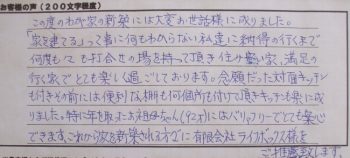 お客様の声（２００文字程度）
この度のわが家の新築には大変お世話様に成りました。
「家を建てる」って事に何もわからない私達に納得の行くまで
何度も打合せの場を持って頂き住み良い家、満足の
行く家でとても楽しく過ごしております。念願だった対面キッチン
も付きその前には便利な棚も何個所も付けて頂きキッチンも楽に成り
ました。特に年を取ったお祖母ちゃん(92才)にはバリアフリーでとても楽し
できます。これから家を新築される方々に有限会社ライフボックス様を
ご推薦致します。